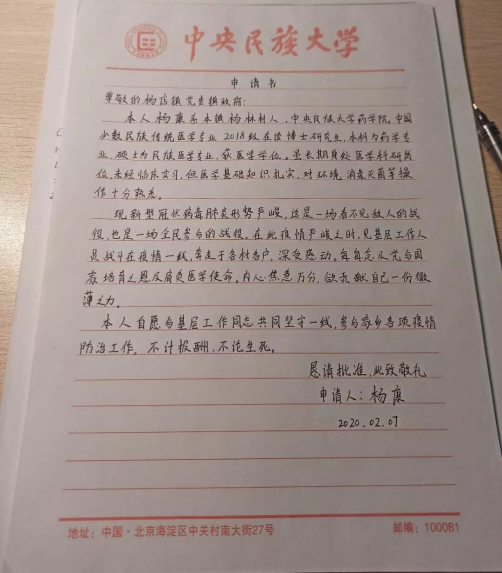 中央民族大学
申请书
尊敬的杨店镇党委镇政府:
本人杨康系本镇杨林村人,中央民族大学药学院,中国
少数民族传统医学专业2018级在读博士研究生,本科为药学专
业,硕士为民族医学专业,获医学学位。虽长期身处医学科研岗
位,未经临床实习,但医学基础知识扎实,对环境消毒灭菌等操
作十分熟悉。
现新型冠状病毒肺炎形势严峻,这是一场看不见敌人的战
役,也是一场全民参与的战役。在此疫情严峻之时,见基层工作人
员战斗在疫情一线,奔走于各村各户,深受感动。每每念及党与国
家培育之恩及肩负医学使命,内心焦急万分,欲贡献自己一份微
薄之力。
本人自愿与基层工作同志共同坚守一线,参与家乡各项疫情
防治工作,不计报酬,不论生死。
恳请批准,此致敬礼
申请人:杨康
2020.02.07
地址:中国·北京海淀区中关村南大街27号 邮编:100081